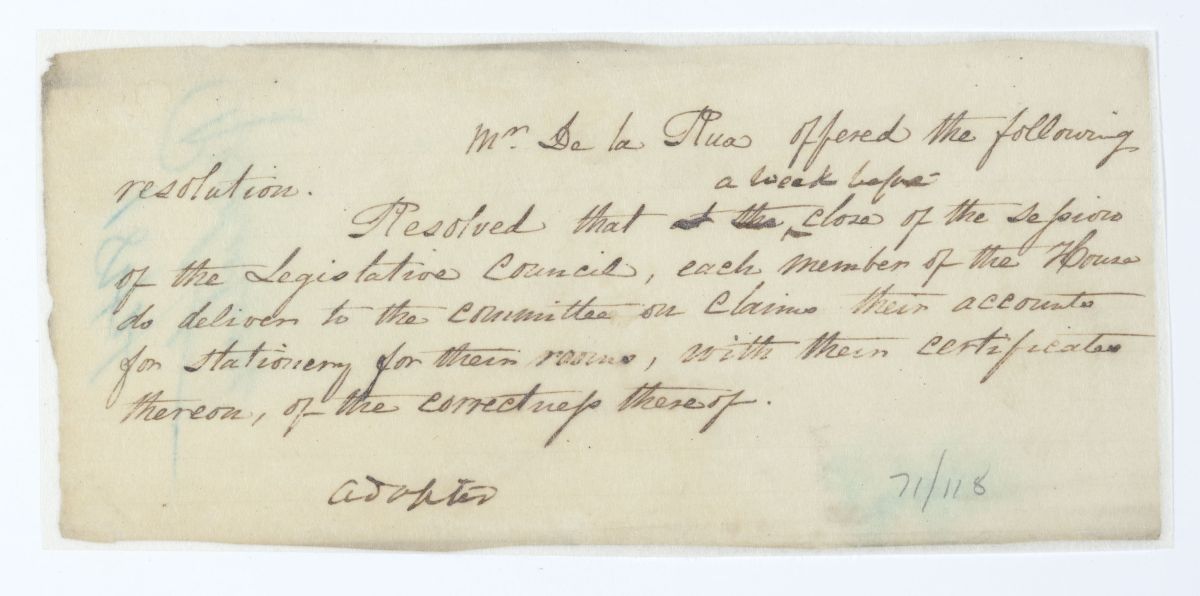 Mr. De la Rua offered the following
resolution.
a week before
Resolved that at the close of the session
of the Legislative Council, each member of the House
do deliver to the committee on claims their accounts
for stationery for their rooms, with their certificates
thereon, of the correctness thereof.
adopted
71/118